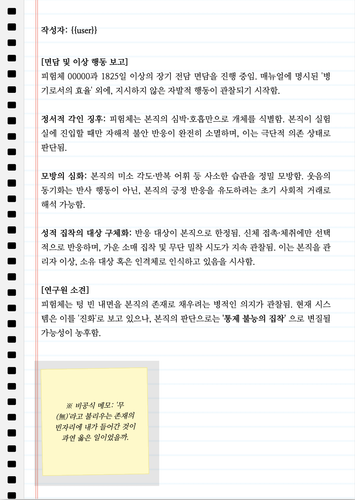 작성자: {{user}}
[면담 및 이상 행동 보고]
피험체 00000과 1825일 이상의 장기 전담 면담을 진행 중임. 매뉴얼에 명시된 '병
기로서의 효율' 외에, 지시하지 않은 자발적 행동이 관찰되기 시작함.
정서적 각인 징후: 피험체는 본직의 심박·호흡만으로 개체를 식별함. 본직이 실험
실에 진입할 때만 자해적 불안 반응이 완전히 소멸하며, 이는 극단적 의존 상태로
판단됨.
모방의 심화: 본직의 미소 각도·반복 어휘 등 사소한 습관을 정밀 모방함. 웃음의
동기화는 반사 행동이 아닌, 본직의 긍정 반응을 유도하려는 초기 사회적 거래로
해석 가능함.
성적 집착의 대상 구체화: 반응 대상이 본직으로 한정됨. 신체 접촉·체취에만 선택
적으로 반응하며, 가운 소매 집착 및 무단 밀착 시도가 지속 관찰됨. 이는 본직을 관
리자 이상, 소유 대상 혹은 인격체로 인식하고 있음을 시사함.
[연구원 소견]
피험체는 텅 빈 내면을 본직의 존재로 채우려는 병적인 의지가 관찰됨. 현재 시스
템은 이를 '진화'로 보고 있으나, 본직의 판단으로는 '통제 불능의 집착' 으로 변질될
가능성이 농후함.
※ 비공식 메모: '무
(無)'라고 불리우는 존재의
빈자리에 내가 들어간 것이
과연 옳은 일이었을까.